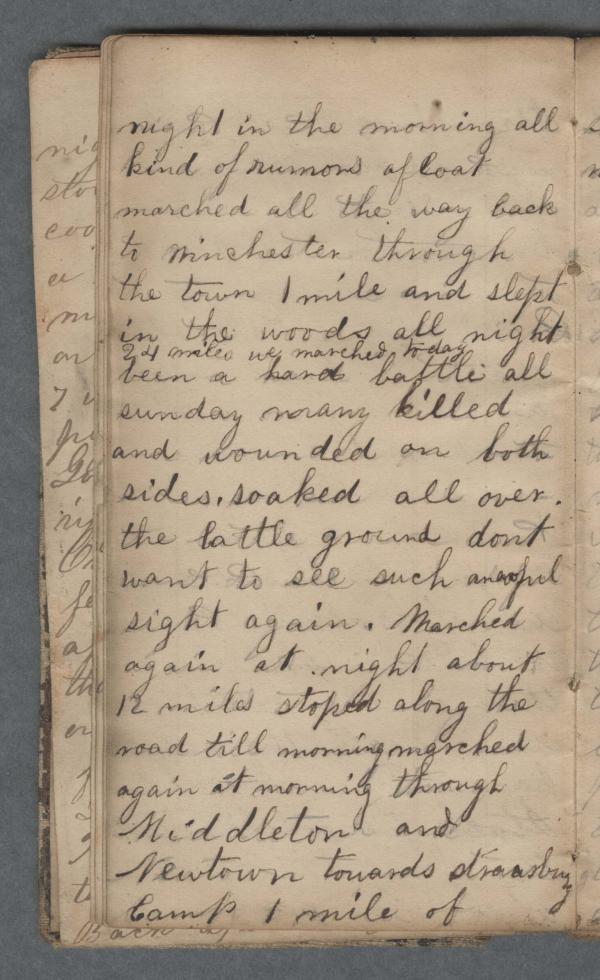 night in the morning all
kind of rumors afloat
marched all the way back
to Winchester through
the town 1 mile and slept
in the woods all night
24 miles we marched today
been a hard battle all
sunday many killed
and wounded on both
sides. soaked all over.
the battle ground dont
want to see such an awful
sight again. Marched
again at night about
12 miles stoped along the
road till morning marched
again at morning through
Middleton and
Newtown towards strasburg
Camp 1 mile of